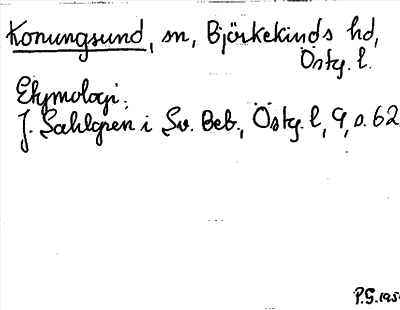 Konungsund, sn, Björkekinds hd,
Östg. l.
Etymologi.
J. Sahlgren i Sv. Beb., Östg. l, 9, s. 62
P.G. 195